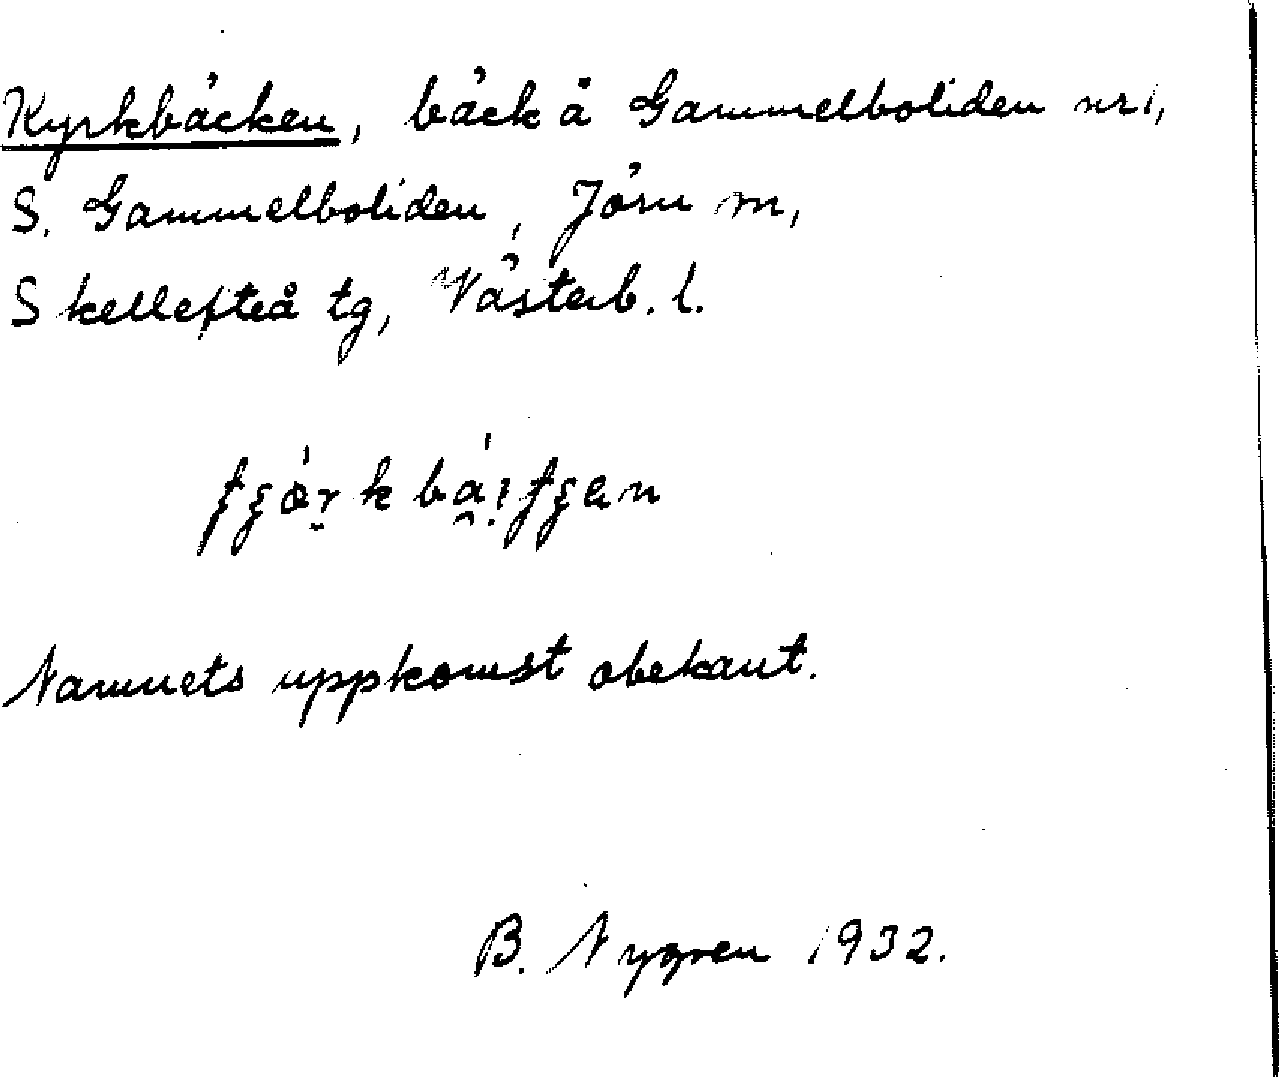 Kyrkbäcken, bäck å Gammelboliden nr 1,
S. Gammelboliden, Jörn m,
Skellefteå tg, Västerb. l.
Namnets uppkomst obekant.
B. Nygren 1932.